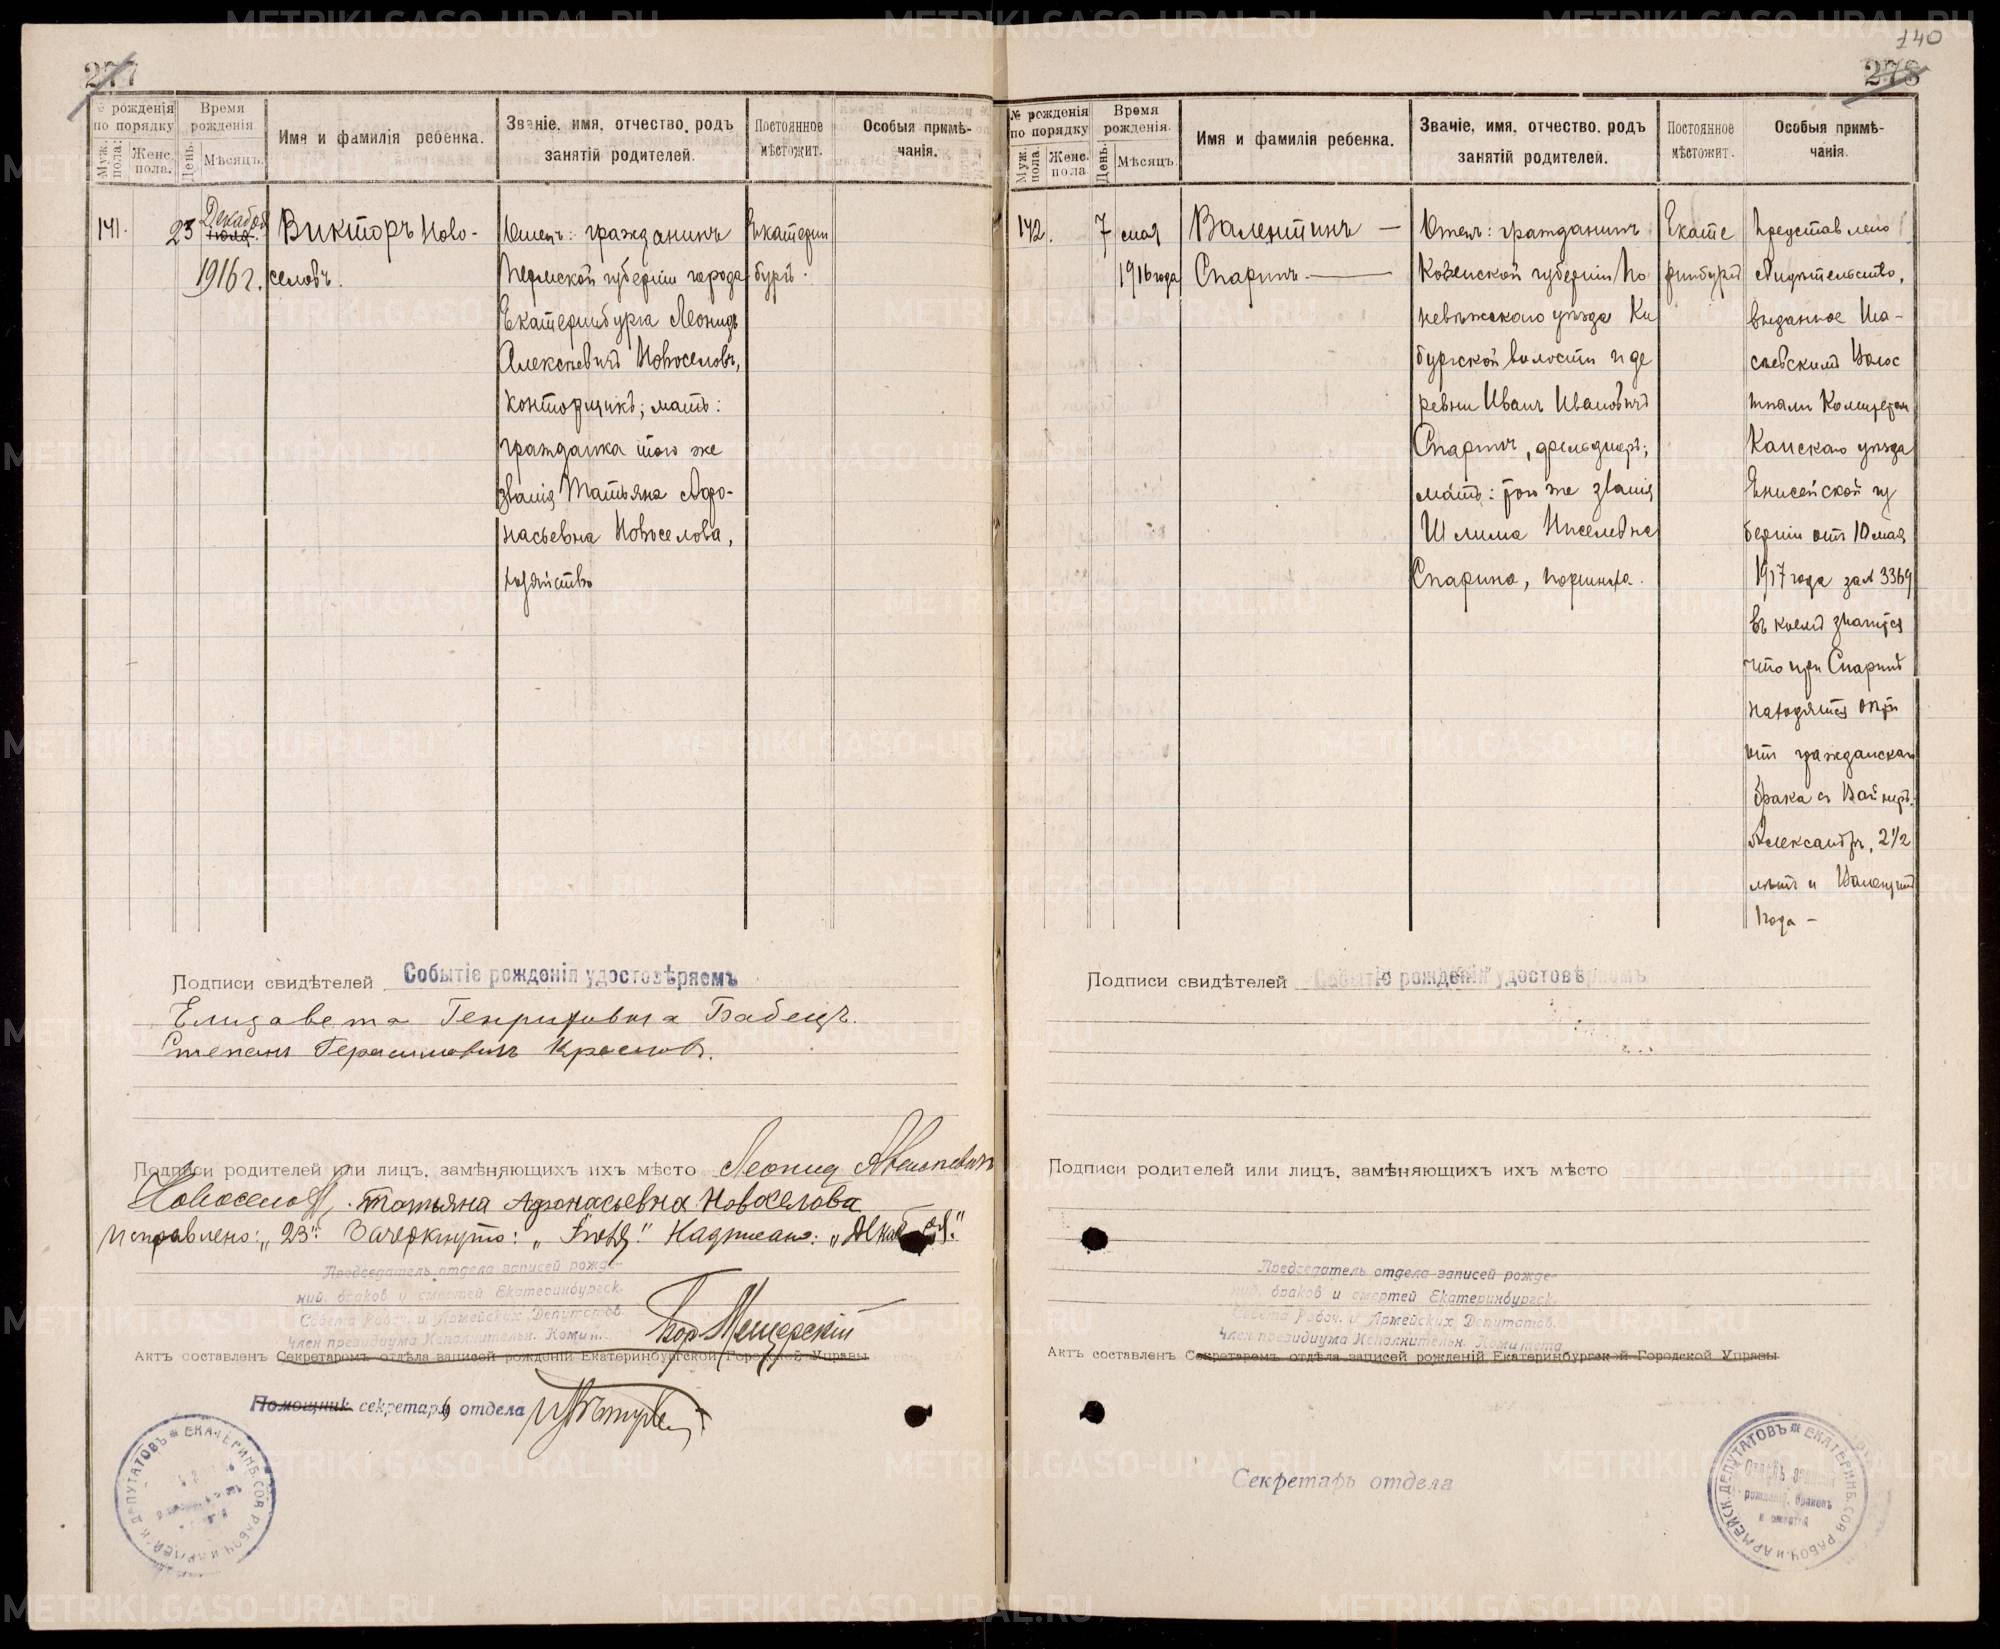 277
№ рожденія по порядку
Муж. пола.
Женс. пола.
Время рожденія
День.
Мѣсяцъ.
Имя и фамилія ребенка.
Званіе, имя, отчество, родъ занятій родителей.
Постоянное мѣстожит.
Особыя примѣчанія.
141.
23
Декабря
Іюля.
1916 г.
Викторъ Ново-
селовъ.
Отецъ: гражданинъ
Пермской губерніи города
Екатеринбурга Леонидъ
Алексѣевичъ Новоселовъ,
конторщикъ; мать:
гражданка того же
званія Татьяна Афо-
насьевна Новоселова,
хозяйство
Екатерин
бургъ.
Подписи свидѣтелей Событіе рожденія удостовѣряемъ
Елизавета Генриховна Бабецъ.
Степанъ Герасимовичъ Красновъ.
Подписи родителей или лицъ, замѣняющихъ ихъ мѣсто Леонид Алексѣевичъ
Новоселовъ. Татьяна Афонасьевна Новоселова
Исправлено: „23". Зачеркнуто: „Іюля." Надписано: „Декабря."
Председатель отдела записей рожде-
ний, браков и смертей Екатеринбургск.
Совета Рабоч. и Армейских Депутатов.
Член президиума Исполнительн. Комит.
Мещерскій
Актъ составленъ Секретаремъ отдѣла записей рожденій Екатеринбургской Городской Управы
Помощник секретарь отдела
ЕКАТЕРИНБ. СОВ. РАБОЧ. И АРМЕЙСК. ДЕПУТАТОВЪ
140
278
№ рожденія по порядку
Муж. пола.
Женс. пола
Время рожденія.
День.
Мѣсяцъ.
Имя и фамилія ребенка.
Званіе, имя, отчество, родъ занятій родителей.
Постоянное мѣстожит.
Особыя примѣчанія.
142.
7
мая
1916 года
Валентинъ —
Спаринъ —
Отецъ: гражданинъ
Ковенской губерніи По
невѣжскаго уѣзда Ки
бургской волости и де
ревни Иванъ Ивановичъ
Спаринъ, фельдшеръ;
мать: того же званія
Спарина,
Екате
ринбургъ
Представлено
свидѣтельство,
выданное
Волос
тнымъ Комитетом
Канскаго уѣзда
Енисейской гу
берніи отъ 10 мая
1917 года за № 3369
въ коемъ значится
что при Спаринѣ
находятся дѣти
отъ гражданскаго
брака съ
Александръ, 2 1/2
лѣтъ и Валентинъ
1 года —
Подписи свидѣтелей Событіе рожденія удостовѣряемъ
Подписи родителей или лицъ, замѣняющихъ ихъ мѣсто
Председатель отдела записей рожде-
ний, браков и смертей Екатеринбургск.
Совета Рабоч. и Армейских Депутатов.
Член президиума Исполнительн. Комитета
Актъ составленъ Секретаремъ отдѣла записей рожденій Екатеринбургской Городской Управы
Секретарь отдела
ЕКАТЕРИНБ. СОВ. РАБОЧ. И АРМЕЙСК. ДЕПУТАТОВЪ
Отдѣлъ записей рожденій, браковъ и смертей
METRIKI.GASO-URAL.RU